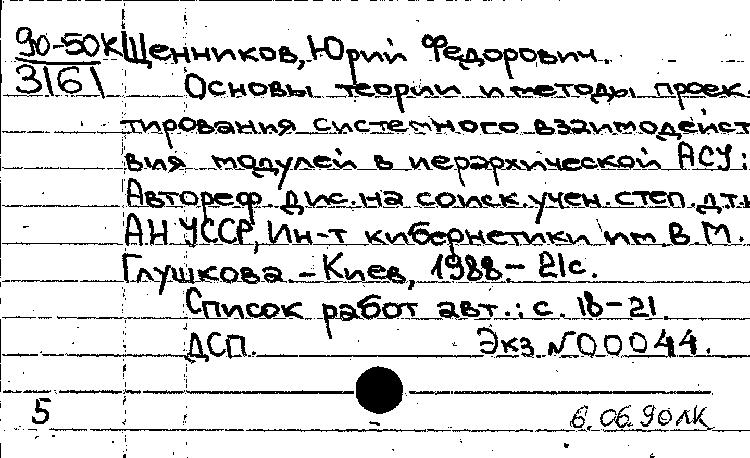 90-50К Щенников, Юрий Федорович.
3161 Основы теории и методы проек-
тирования системного взаимодейст
вия модулей в иерархической АСУ:
Автореф. дис. на соиск. учен. степ. д.т.н
АН УССР, Ин-т кибернетики им. В.М.
Глушкова. - Киев, 1988. - 21с.
Список работ авт.: с. 18-21.
ДСП. Экз. №00044.
5 6.06.90ЛК